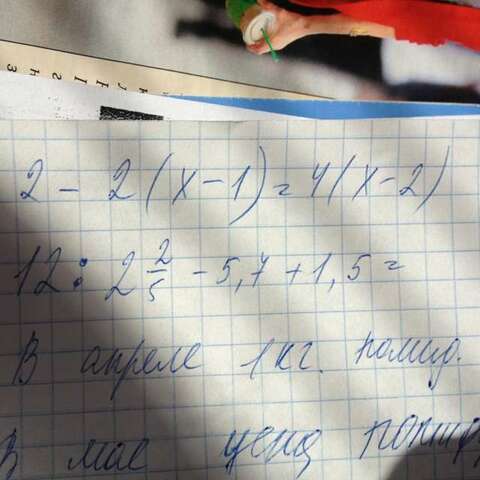 2 - 2(x-1)=4(x-2)
12 : 2 2/5 - 5,7 + 1,5 =
В апреле 1 кг. помид.
В мае цена